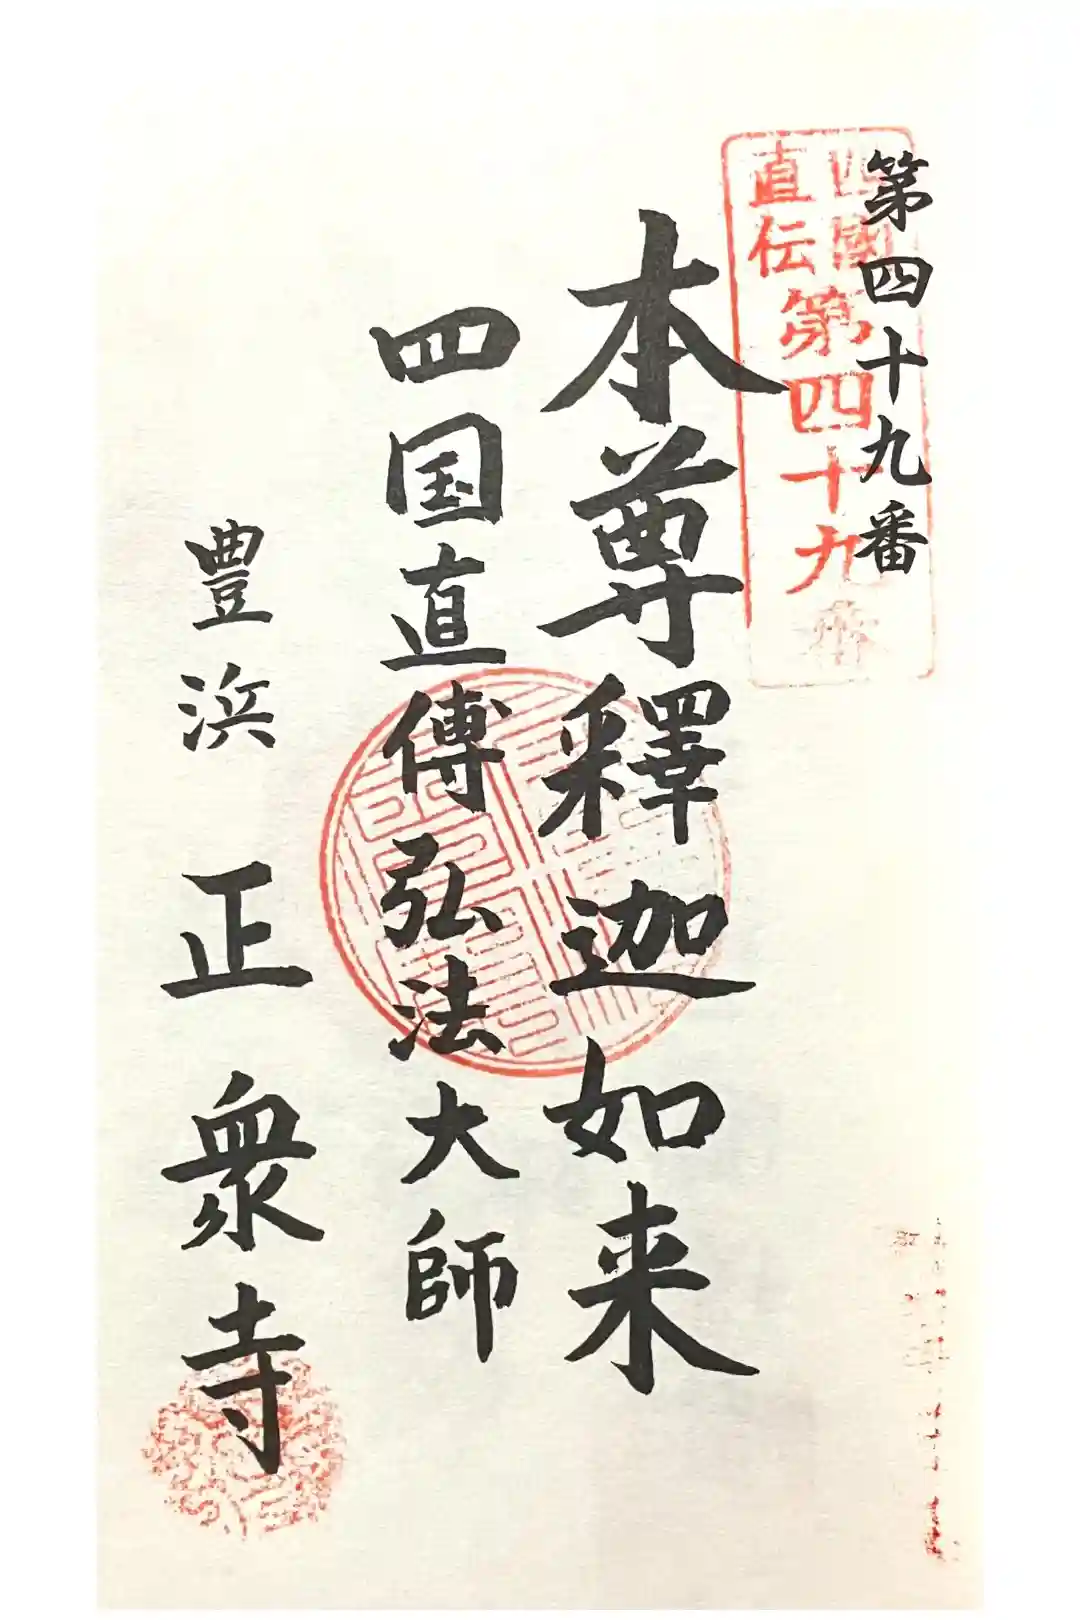 第四十九番
四國
直伝
第四十九番
本尊釋迦如来
四国直傳弘法大師
豊浜 正衆寺